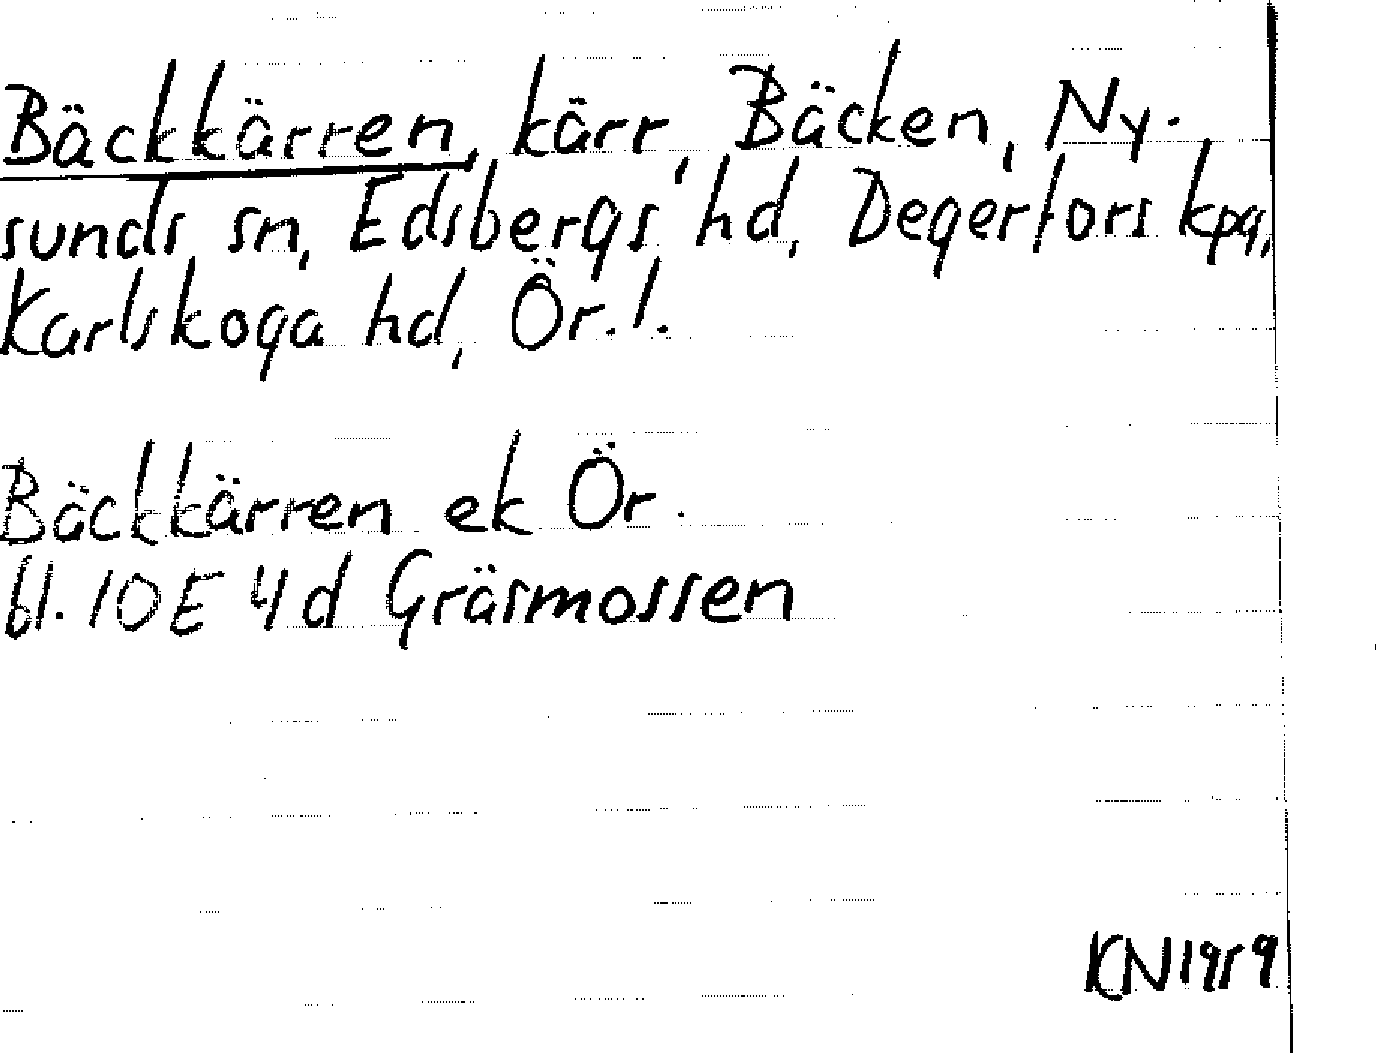 Bäckkärren, kärr, Bäcken, Ny-
sunds sn, Edsbergs hd, Degerfors kpg,
Karlskoga hd, Ör. l.
Bäckkärren ek Ör.
bl. 10E 4d Gräsmossen
KN1959